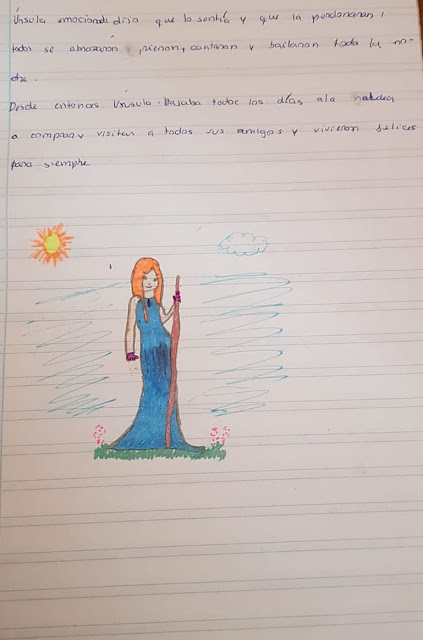 Úrsula emocionada dijo que lo sentía y que la perdonaran,
todos se abrazaron, rieron, cantaron y bailaron toda la no-
che.
Desde entonces Úrsula pasaba todos los días a la
a comprar y visitar a todos sus amigos y vivieron felices
para siempre